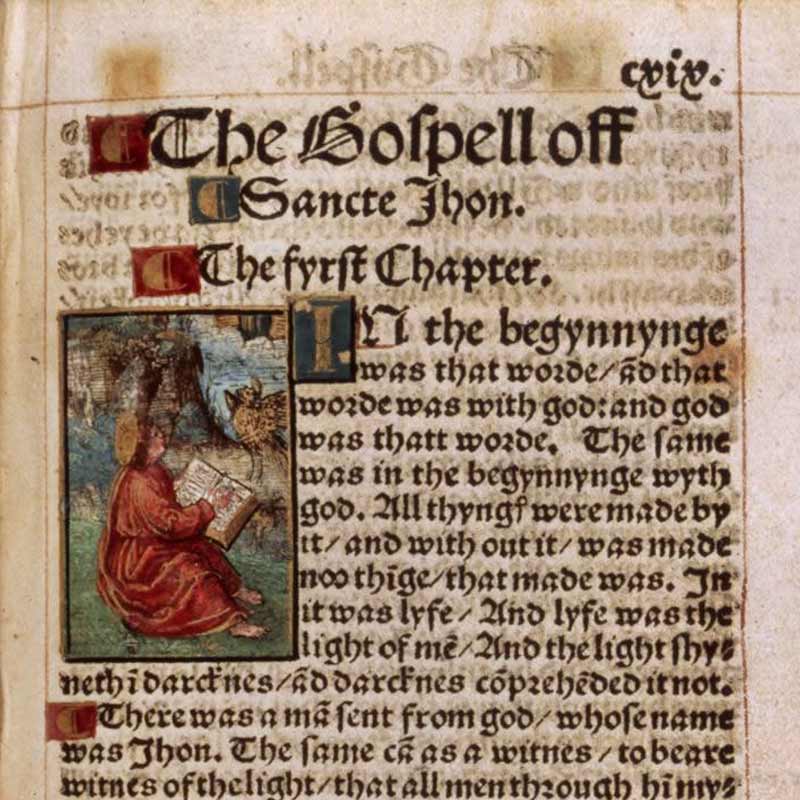 cxix.
¶ The Gospell off
¶ Sancte Jhon.
¶ The fyrst Chapter.
IN the begynnynge
was that worde/ ād that
worde was with god: and god
was thatt worde. The same
was in the begynnynge wyth
god. All thyngꝭ were made by
it/ and with out it/ was made
noo thīge/ that made was. In
it was lyfe/ And lyfe was the
light of mē/ And the light shy⸗
neth ī darcknes/ ād darcknes cōprehēded it not.
¶ There was a mā sent from god/ whose name
was Jhon. The same cā as a witnes/ to beare
witnes of the light/ that all men through hī my⸗